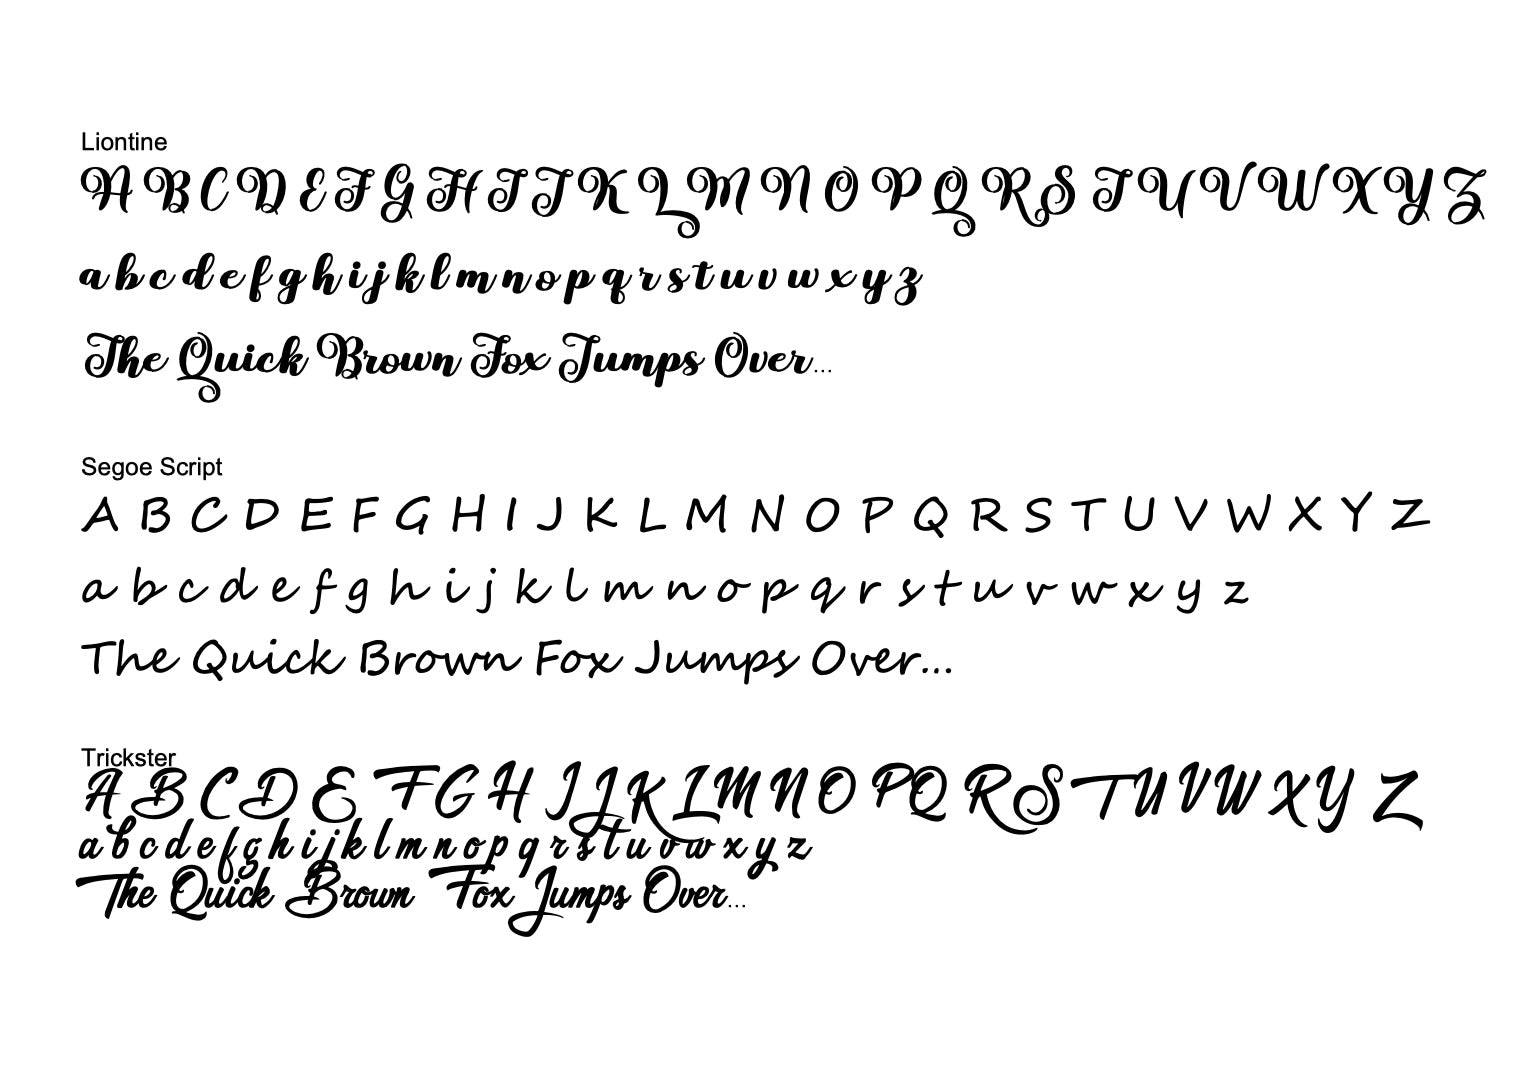 Liontine
A B C D E F G H I J K L M N O P Q R S T U V W X Y Z
a b c d e f g h i j k l m n o p q r s t u v w x y z
The Quick Brown Fox Jumps Over...
Segoe Script
A B C D E F G H I J K L M N O P Q R S T U V W X Y Z
a b c d e f g h i j k l m n o p q r s t u v w x y z
The Quick Brown Fox Jumps Over...
Trickster
A B C D E F G H I J K L M N O P Q R S T U V W X Y Z
a b c d e f g h i j k l m n o p q r s t u v w x y z
The Quick Brown Fox Jumps Over...